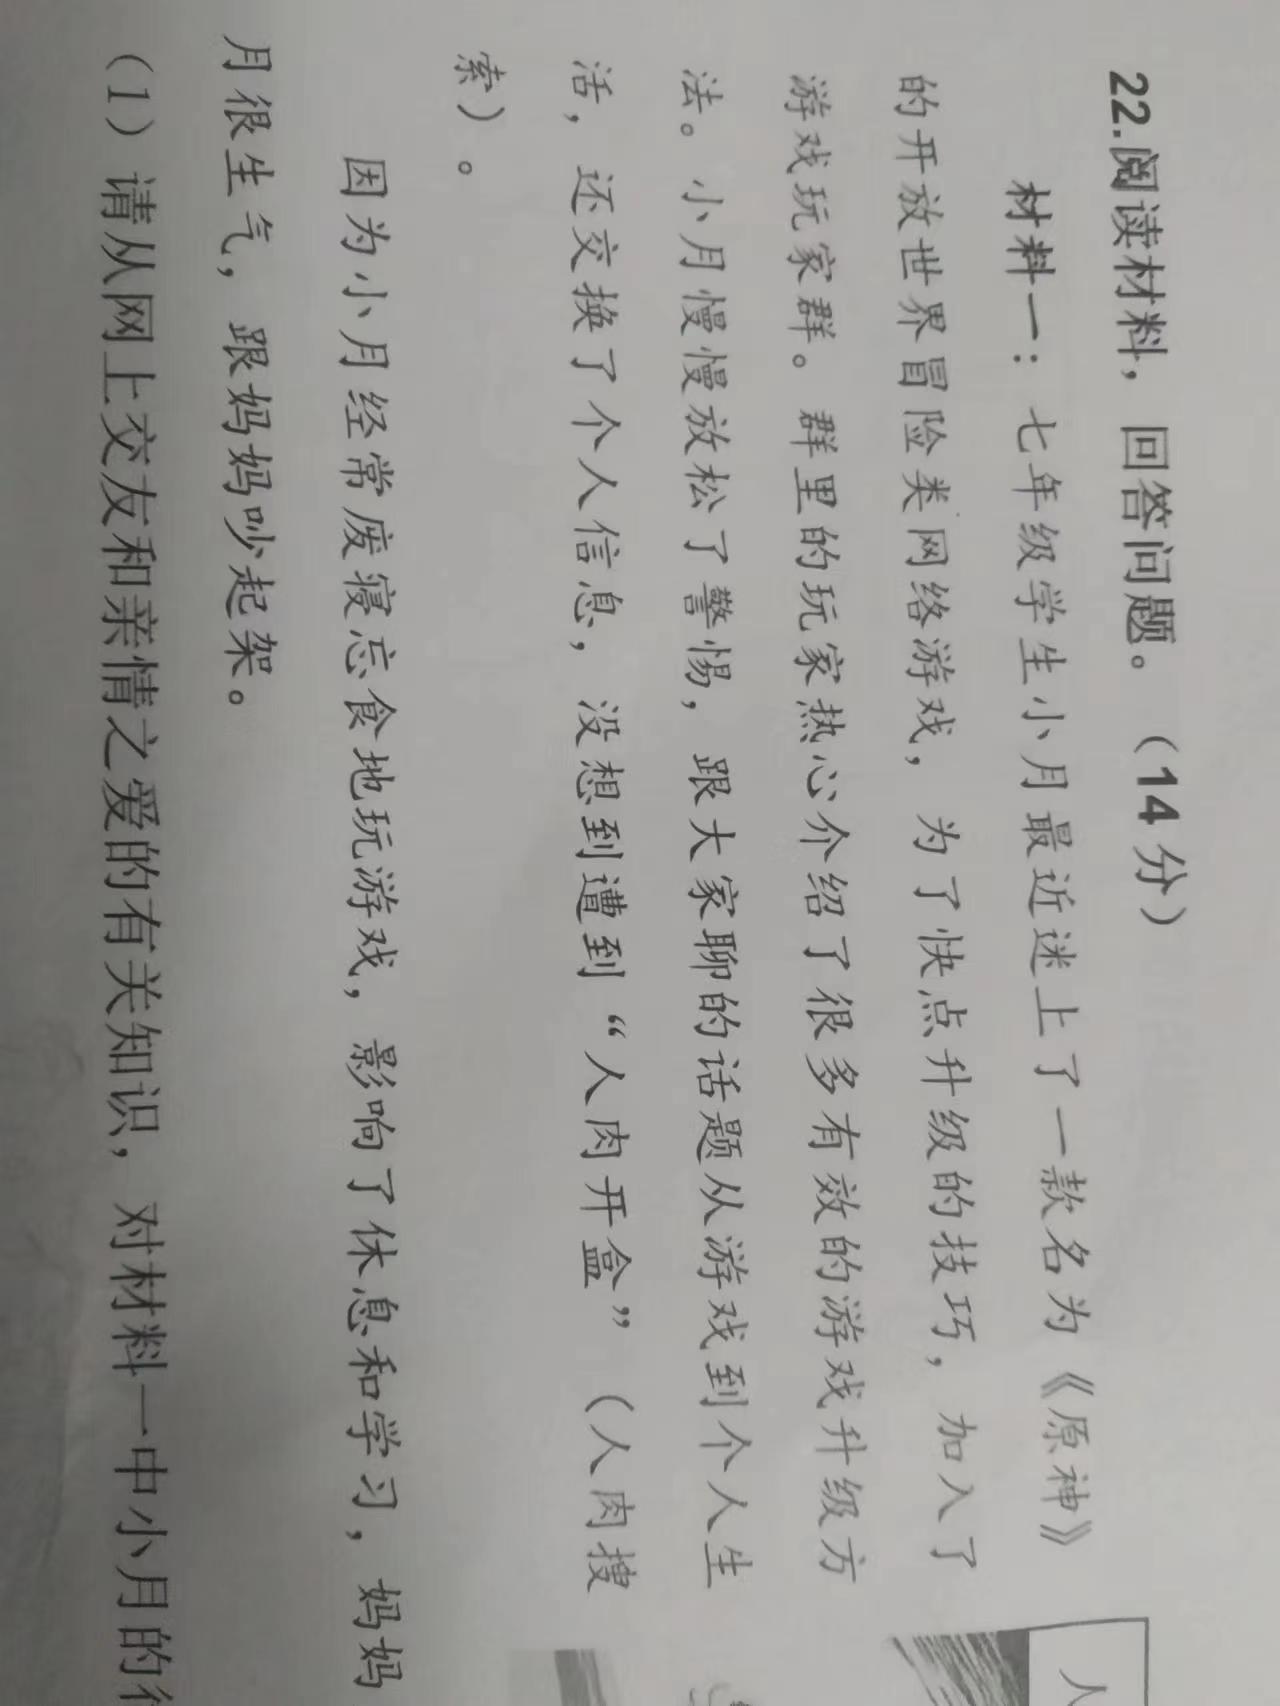 22.阅读材料，回答问题。（14分）
材料一：七年级学生小月最近迷上了一款名为《原神》
的开放世界冒险类网络游戏，为了快点升级的技巧，加入了
游戏玩家群。群里的玩家热心介绍了很多有效的游戏升级方
法。小月慢慢放松了警惕，跟大家聊的话题从游戏到个人生
活，还交换了个人信息，没想到遭到“人肉开盒”（人肉搜
索）。
因为小月经常废寝忘食地玩游戏，影响了休息和学习，妈妈
月很生气，跟妈妈吵起架。
（1）请从网上交友和亲情之爱的有关知识，对材料一中小月的
人